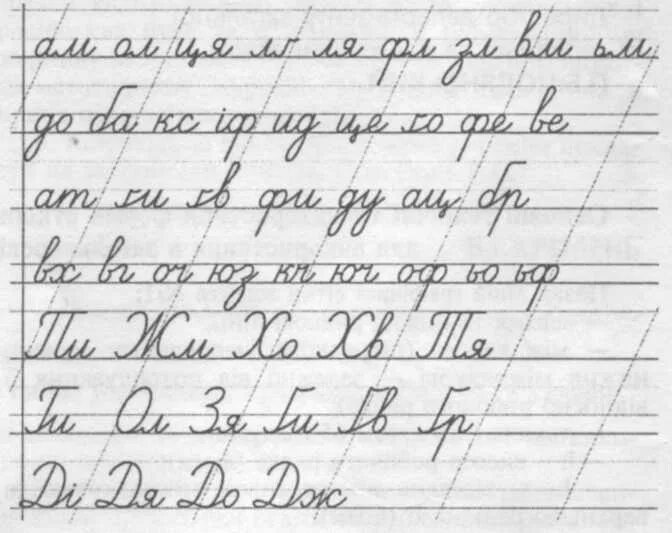 ам ол ця лг ля фл зл вм ьм
до ба кс іф ид це го фе ве
ат ги гв фи ду ащ бр
вх вг оч юз кч юч оф ьо ьф
Пи Жм Хо Хв Тя
Ги Ол Зя Ґи Пв Гр
Ді Дя До Дж